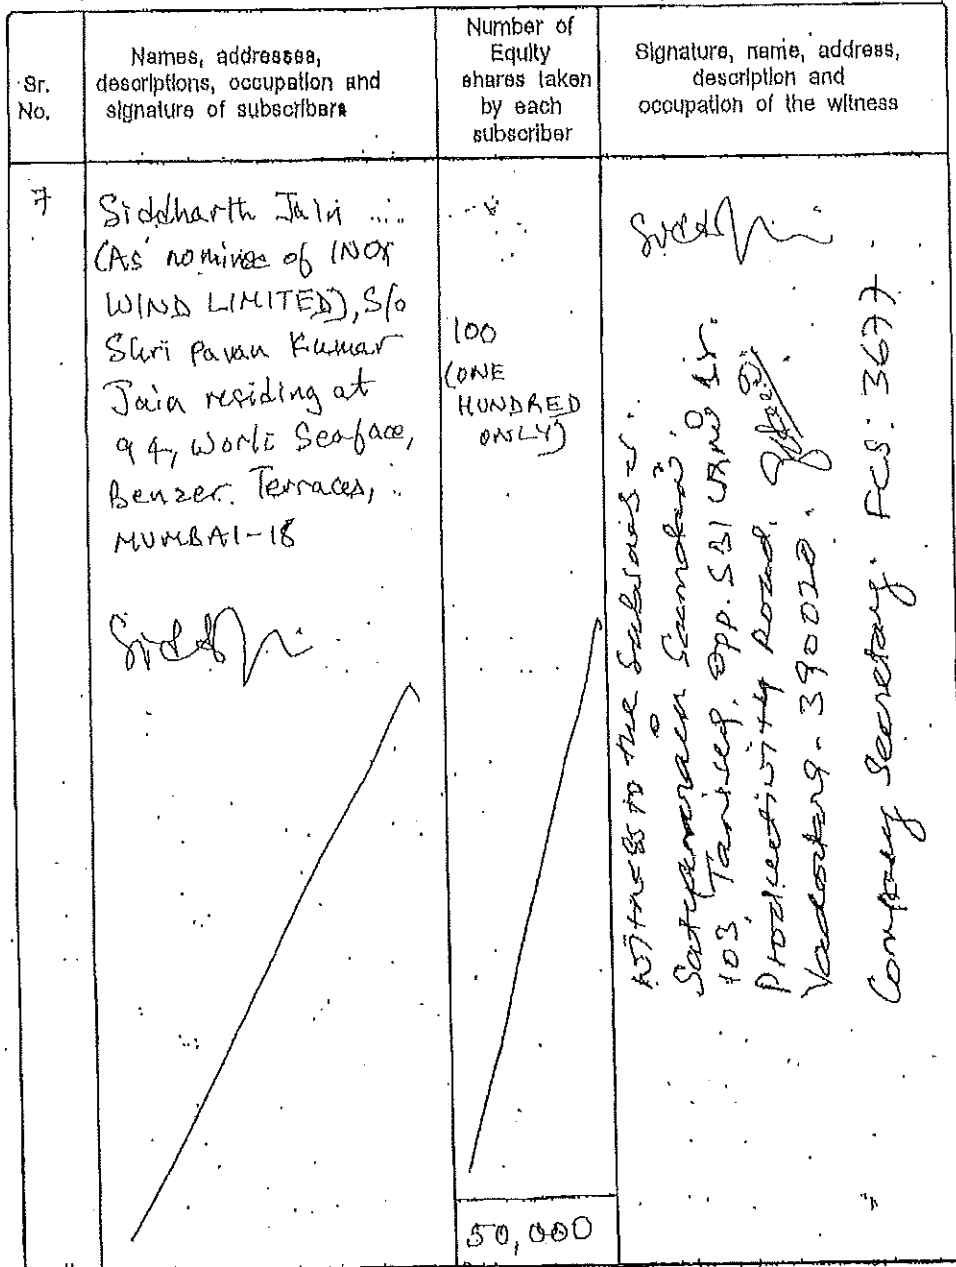 Sr.
No.
Names, addresses,
descriptions, occupation and
signature of subscribers
Number of
Equity
shares taken
by each
subscriber
Signature, name, address,
description and
occupation of the witness
7
Siddharth Jain
(As nominee of INOX
WIND LIMITED), S/o
Shri Pavan Kumar
Jain residing at
94, Worli Seaface,
Benzer Terraces,
MUMBAI-18
100
(ONE
HUNDRED
ONLY)
50,000
Witness to the
103, Opp. SBI
Productivity Road,
Vadodara-390020.
Company Secretary. FCS: 3677